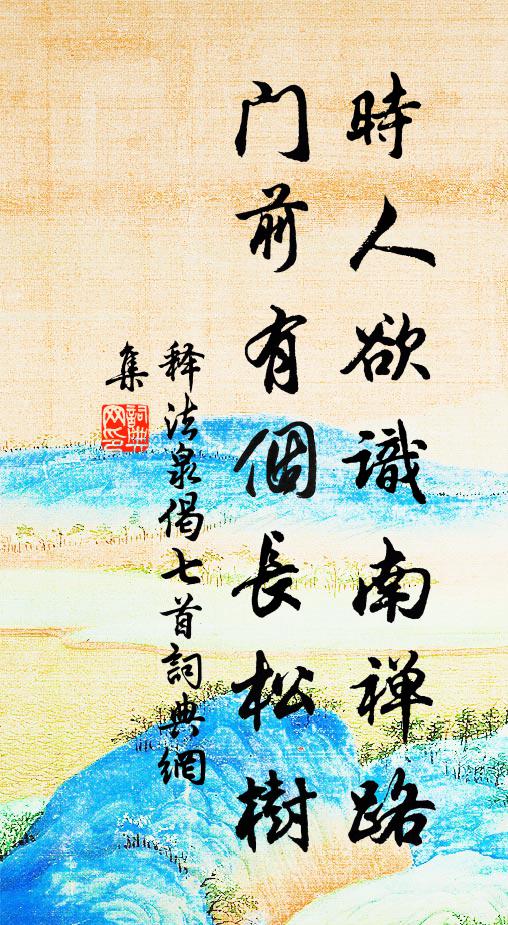 時人欲識南禅路
门前有個長松樹
释法泉偈七首詞典網
集
詞典
网印